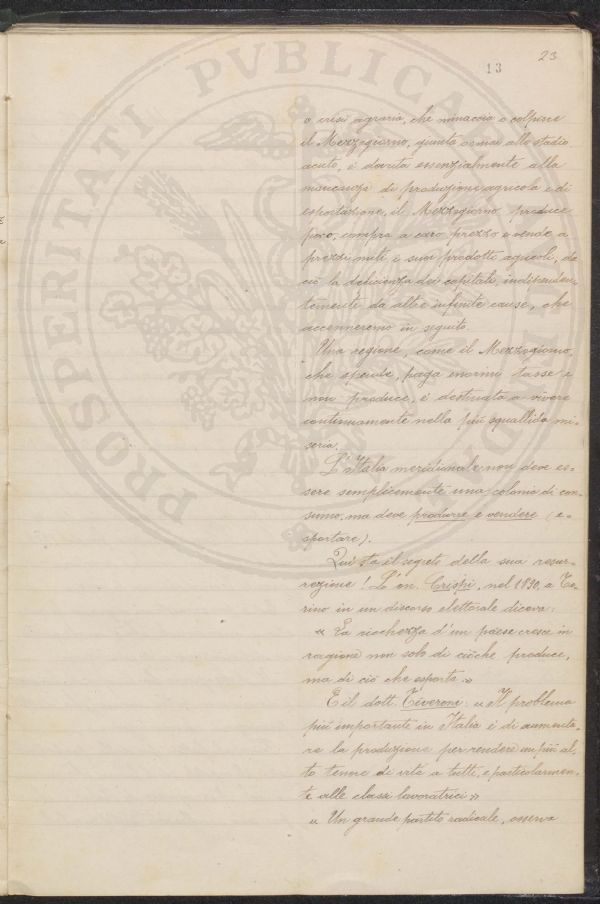 23
13
o crisi agraria, che minaccia o colpisce
il Mezzogiorno, giunta ormai allo stadio
acuto, è dovuta essenzialmente alla
mancanza di produzione agricola e di
esportazione, il Mezzogiorno produce
poco, compra a caro prezzo e vende a
prezzi miti i suoi prodotti agricoli, da
ciò la deficienza dei capitali, indipenden-
temente da altre infinite cause, che
accenneremo in seguito.
Una regione, come il Mezzogiorno,
che spende, paga enormi tasse e
non produce, è destinata a vivere
continuamente nella più squallida mi-
seria.
L'Italia meridionale non deve es-
sere semplicemente una colonia di con-
sumo, ma deve produrre e vendere (e-
sportare).
Qui sta il segreto della sua resur-
rezione! L'on. Crispi, nel 1890, a To-
rino in un discorso elettorale diceva:
« La ricchezza d'un paese cresce in
ragione non solo di ciò che produce,
ma di ciò che esporta »
E il dott. Tiveroni: « Il problema
più importante in Italia è di aumenta-
re la produzione per rendere un più al-
to tenore di vita a tutti, e particolarmen-
te alle classi lavoratrici »
« Un grande partito radicale, osserva
PROSPERITATI PVBLICAE